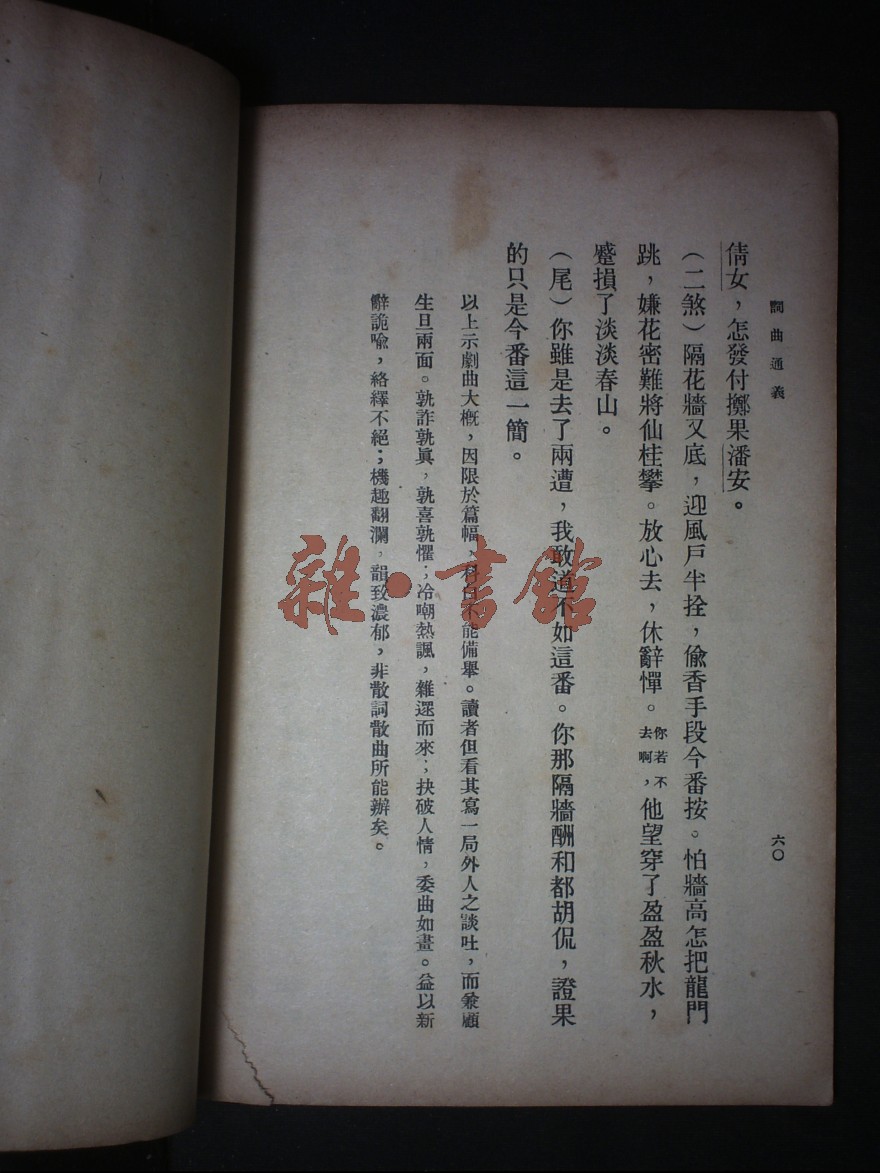 詞曲通義
六〇
倩女，怎發付擲果潘安。
（二煞）隔花牆又底，迎風戶半拴，偸香手段今番按。怕牆高怎把龍門
跳，嫌花密難將仙桂攀。放心去，休辭憚。你若不去啊，他望穿了盈盈秋水，
蹙損了淡淡春山。
（尾）你雖是去了兩遭，我敢道不如這番。你那隔牆酬和都胡侃，證果
的只是今番這一簡。
以上示劇曲大概，因限於篇幅，科白不能備舉。讀者但看其寫一局外人之談吐，而兼顧
生旦兩面。孰詐孰眞，孰喜孰懼；冷嘲熱諷，雜遝而來；抉破人情，委曲如畫。益以新
辭詭喩，絡繹不絕；機趣翻瀾，韻致濃郁，非散詞散曲所能辦矣。
雜·書館